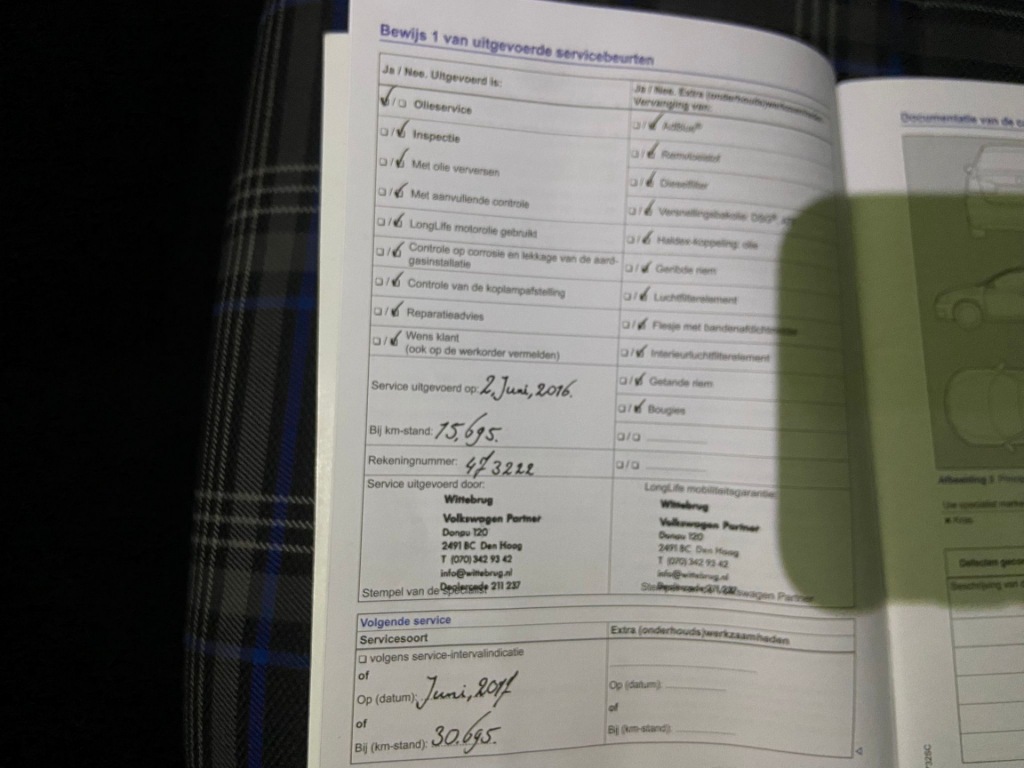 Bewijs 1 van uitgevoerde servicebeurten
Ja / Nee. Uitgevoerd is:
Olieservice
Inspectie
Met olie verversen
Met aanvullende controle
LongLife motorolie gebruikt
Controle op corrosie en lekkage van de aard-
gasinstallatie
Controle van de koplampafstelling
Reparatieadvies
Wens klant
(ook op de werkorder vermelden)
Service uitgevoerd op: 2 Juni, 2016.
Bij km-stand: 15.695.
Rekeningnummer: 473222
Service uitgevoerd door:
Wittebrug
Volkswagen Partner
Donau 120
2491 BC Den Haag
T (070) 342 93 42
info@wittebrug.nl
Dealercode 211 237
Stempel van de specialist
Ja / Nee. Extra (onderhouds)werkzaamheden
Vervanging van:
AdBlue®
Remvloeistof
Dieselfilter
Versnellingsbakolie: DSG®,
Haldex-koppeling: olie
Geribde riem
Luchtfilterelement
Flesje met bandenafdichtmiddel
Interieurluchtfilterelement
Getande riem
Bougies
LongLife mobiliteitsgarantie:
Wittebrug
Volkswagen Partner
Donau 120
2491 BC Den Haag
T (070) 342 93 42
info@wittebrug.nl
Dealercode 211 237
Volkswagen Partner
Volgende service
Servicesoort
volgens service-intervalindicatie
of
Op (datum): Juni, 2017
of
Bij (km-stand): 30.695.
Extra (onderhouds)werkzaamheden
Op (datum):
of
Bij (km-stand):
Documentatie van de
Afbeelding
Defecten
Beschrijving van